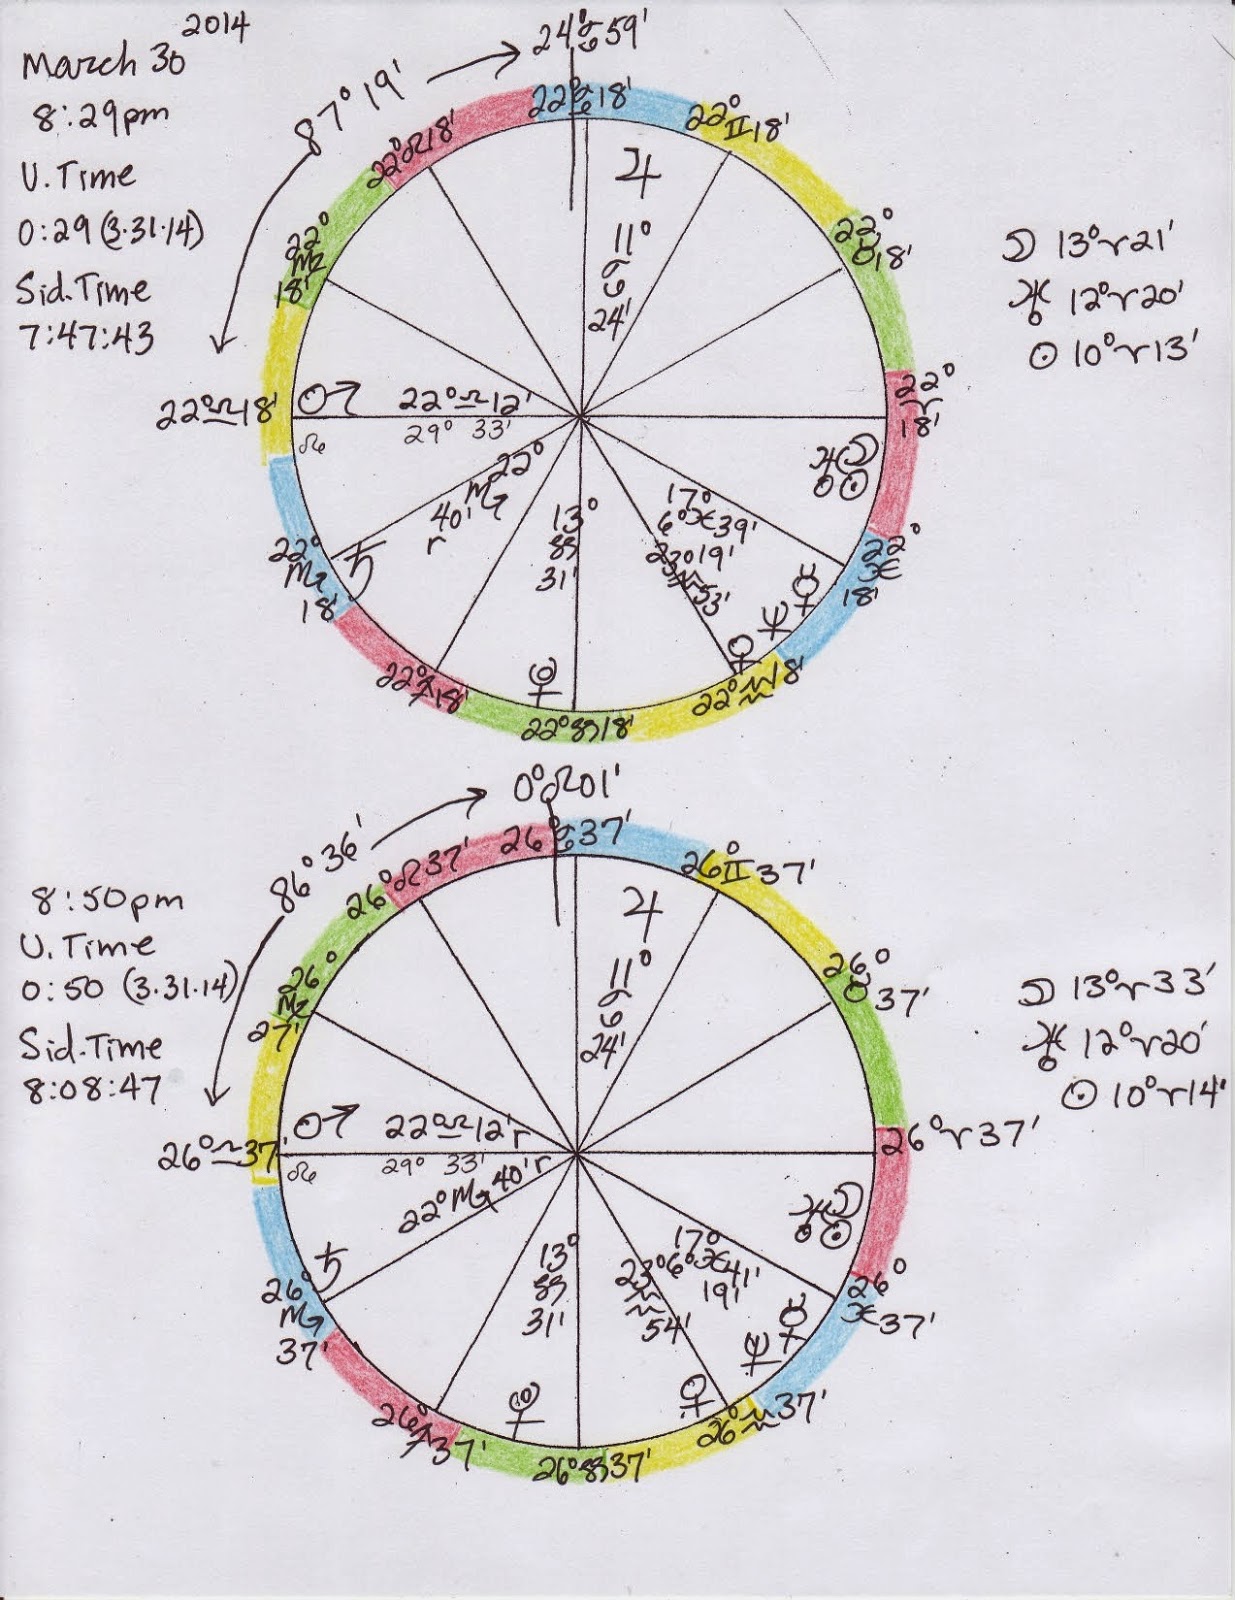 2014
March 30
8:29pm
U. Time
0:29 (3.31.14)
Sid. Time
7:47:43
87° 19'
24°♋59'
22°♋18'
22°♊18'
22°♉18'
22°♈18'
22°♓18'
22°♒18'
22°♑18'
22°♐18'
22°♏18'
22°♎18'
22°♍18'
22°♌18'
♃
11°
♋
24'
♂ 22°♎12'
☊ 29° 33'
♄ 22°♏40' r
13°
♑
31'
17°
6°♓39'
23° 19'
♒ 53'
♅☽
☉
☿
♆
♀
☽ 13°♈21'
♅ 12°♈20'
☉ 10°♈13'
8:50pm
U. Time
0:50 (3.31.14)
Sid. Time
8:08:47
86° 36'
0°♌01'
26°♋37'
26°♊37'
26°♉37'
26°♈37'
26°♓37'
26°♒37'
26°♑37'
26°♐37'
26°♏37'
26°♎37'
26°♍27'
26°♌37'
♃
11°
♋
24'
♂ 22°♎12' r
☊ 29° 33'
♄ 22°♏40' r
13°
♑
31'
17°
6°♓41'
19'
23°
♒
54'
♅☽
☉
☿
♆
♀
☽ 13°♈33'
♅ 12°♈20'
☉ 10°♈14'